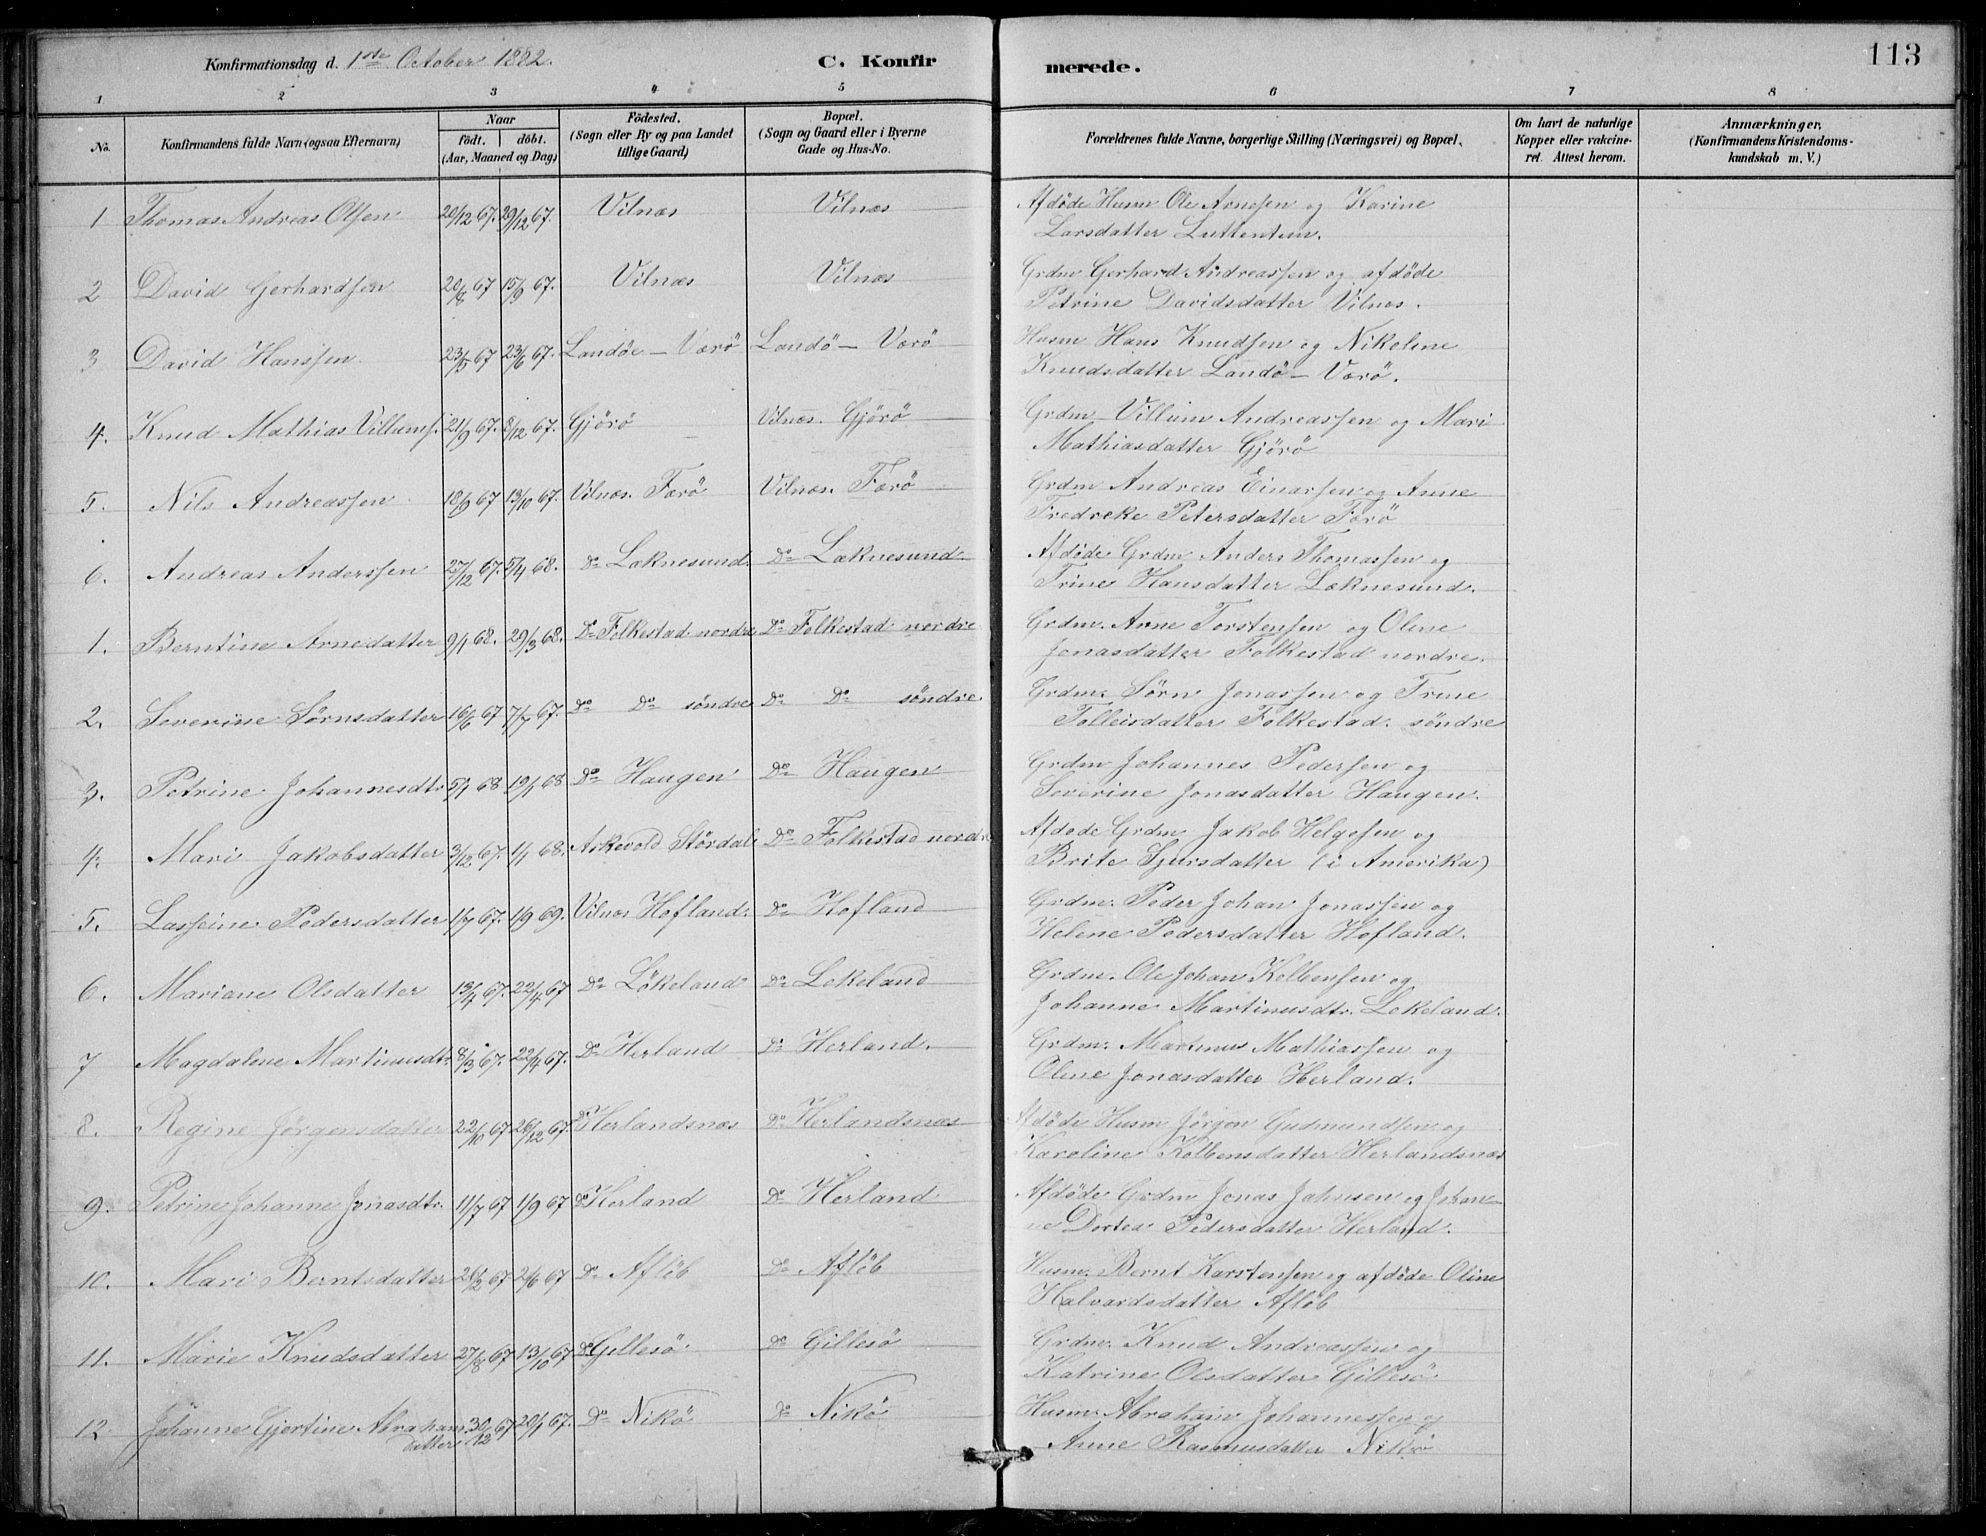 Konfirmationsdag d. 1ste October 1882.
C. Konfirmerede.
113
1 2 3 4 5 6 7 8
No.
Konfirmandens fulde Navn (ogsaa Efternavn)
Naar
födt. döbt.
(Aar, Maaned og Dag)
Födested.
(Sogn eller By og paa Landet
tillige Gaard)
Bopæl.
(Sogn og Gaard eller i Byerne
Gade og Hus-No.
Forældrenes fulde Navne, borgerlige Stilling (Næringsvei) og Bopæl.
Om havt de naturlige
Kopper eller vakcine-
ret. Attest herom.
Anmærkninger.
(Konfirmandens Kristendoms-
kundskab m. V.)
1 Thomas Andreas Olsen 20/12 67. 29/12 67. Vilnæs Vilnæs Afdöde Husm Ole Arnesen og Karine
Larsdatter Luttentun.
2 David Gerhardsen 20/8 67 15/9 67. Vilnæs Vilnæs Grdm Gerhard Andreassen og afdöde
Petrine Davidsdatter Vilnæs.
3 David Hanssen 23/5 67 23/6 67. Landöe - Værö Landö - Værö Husm Hans Knudsen og Nikoline
Knudsdatter Landö - Værö.
4. Knud Mathias Villums. 21/9 67. 8/12 67. Gjörö Vilnæs. Gjörö Grdm Villum Andreassen og Mari
Mathiasdatter Gjörö
5. Nils Andreassen 18/9 67 13/10 67. Vilnæs. Færö Vilnæs. Færö Grdm Andreas Einarsen og Anne
Fredreke Petersdatter Færö
6. Andreas Anderssen 27/12 67. 5/4 68. Do Loknesund Do Loknesund Afdöde Grdm Anders Thomassen og
Trine Hansdatter Loknesund.
1. Berntine Arnedatter 9/1 68. 29/3 68. Do Folkestad nordre Do Folkestad nordre Grdm. Arne Torstensen og Oline
Jonasdatter Folkestad nordre.
2. Severine Sörnsdatter 16/6 67 7/7 67. Do Do söndre Do Do söndre Grdm. Sörn Jonassen og Trine
Tolleisdatter Folkestad. söndre
3. Petrine Johannesdtr 5/1 68 19/1 68 Do Haugen Do Haugen Grdm Johannes Pedersen og
Severine Jonasdatter Haugen.
4. Mari Jakobsdatter 3/12 67. 1/1 68. Askevold Stördal Do Folkestad nordre Afdöde Grdm Jakob Helgesen og
Brite Sjursdatter (i Amerika)
5. Lasseine Pedersdatter 1/7 67. 1/9 69. Vilnæs Hofland. Do Hofland Grdm. Peder Johan Jonassen og
Helene Pedersdatter Hofland.
6. Mariane Olsdatter 13/4 67. 22/4 67 Do Lökeland Do Lekeland Grdm. Ole Johan Kolbensen og
Johanne Martinusdtr. Lekeland.
7 Magdalene Martinusdtr. 8/3 67. 22/4 67. Do Herland Do Herland. Grdm. Martinus Mathiassen og
Oline Jonasdatter Herland.
8. Regine Jörgensdatter 22/10 67 26/12 67. Do Herlandsnæs Do Herlandsnæs Afdöde Husm Jörgen Gudmundsen og
Karoline Kolbensdatter Herlandsnæs
9. Petrine Johanne Jonasdtr. 11/7 67 1/9 67 Do Herland Do Herland Afdöde Grdm Jonas Johnsen og Johan-
ne Dortea Pedersdatter Herland.
10. Mari Berntsdatter 67 2/6 67 Do Aflöb Do Aflöb Husm. Bernt Karstensen og afdöde Oline
Halvardsdatter Aflöb
11. Marie Knudsdatter 27/8 67 13/10 67 Do Gillesö Do Gillesö Grdm. Knud Andreassen og
Katrine Olsdatter Gillesö
12 Johanne Gjertine Abraham 30/12 67 20/1 67. Do Nikö Do Nikö Husm. Abraham Johannessen og
datter Anne Rasmusdatter Nikö